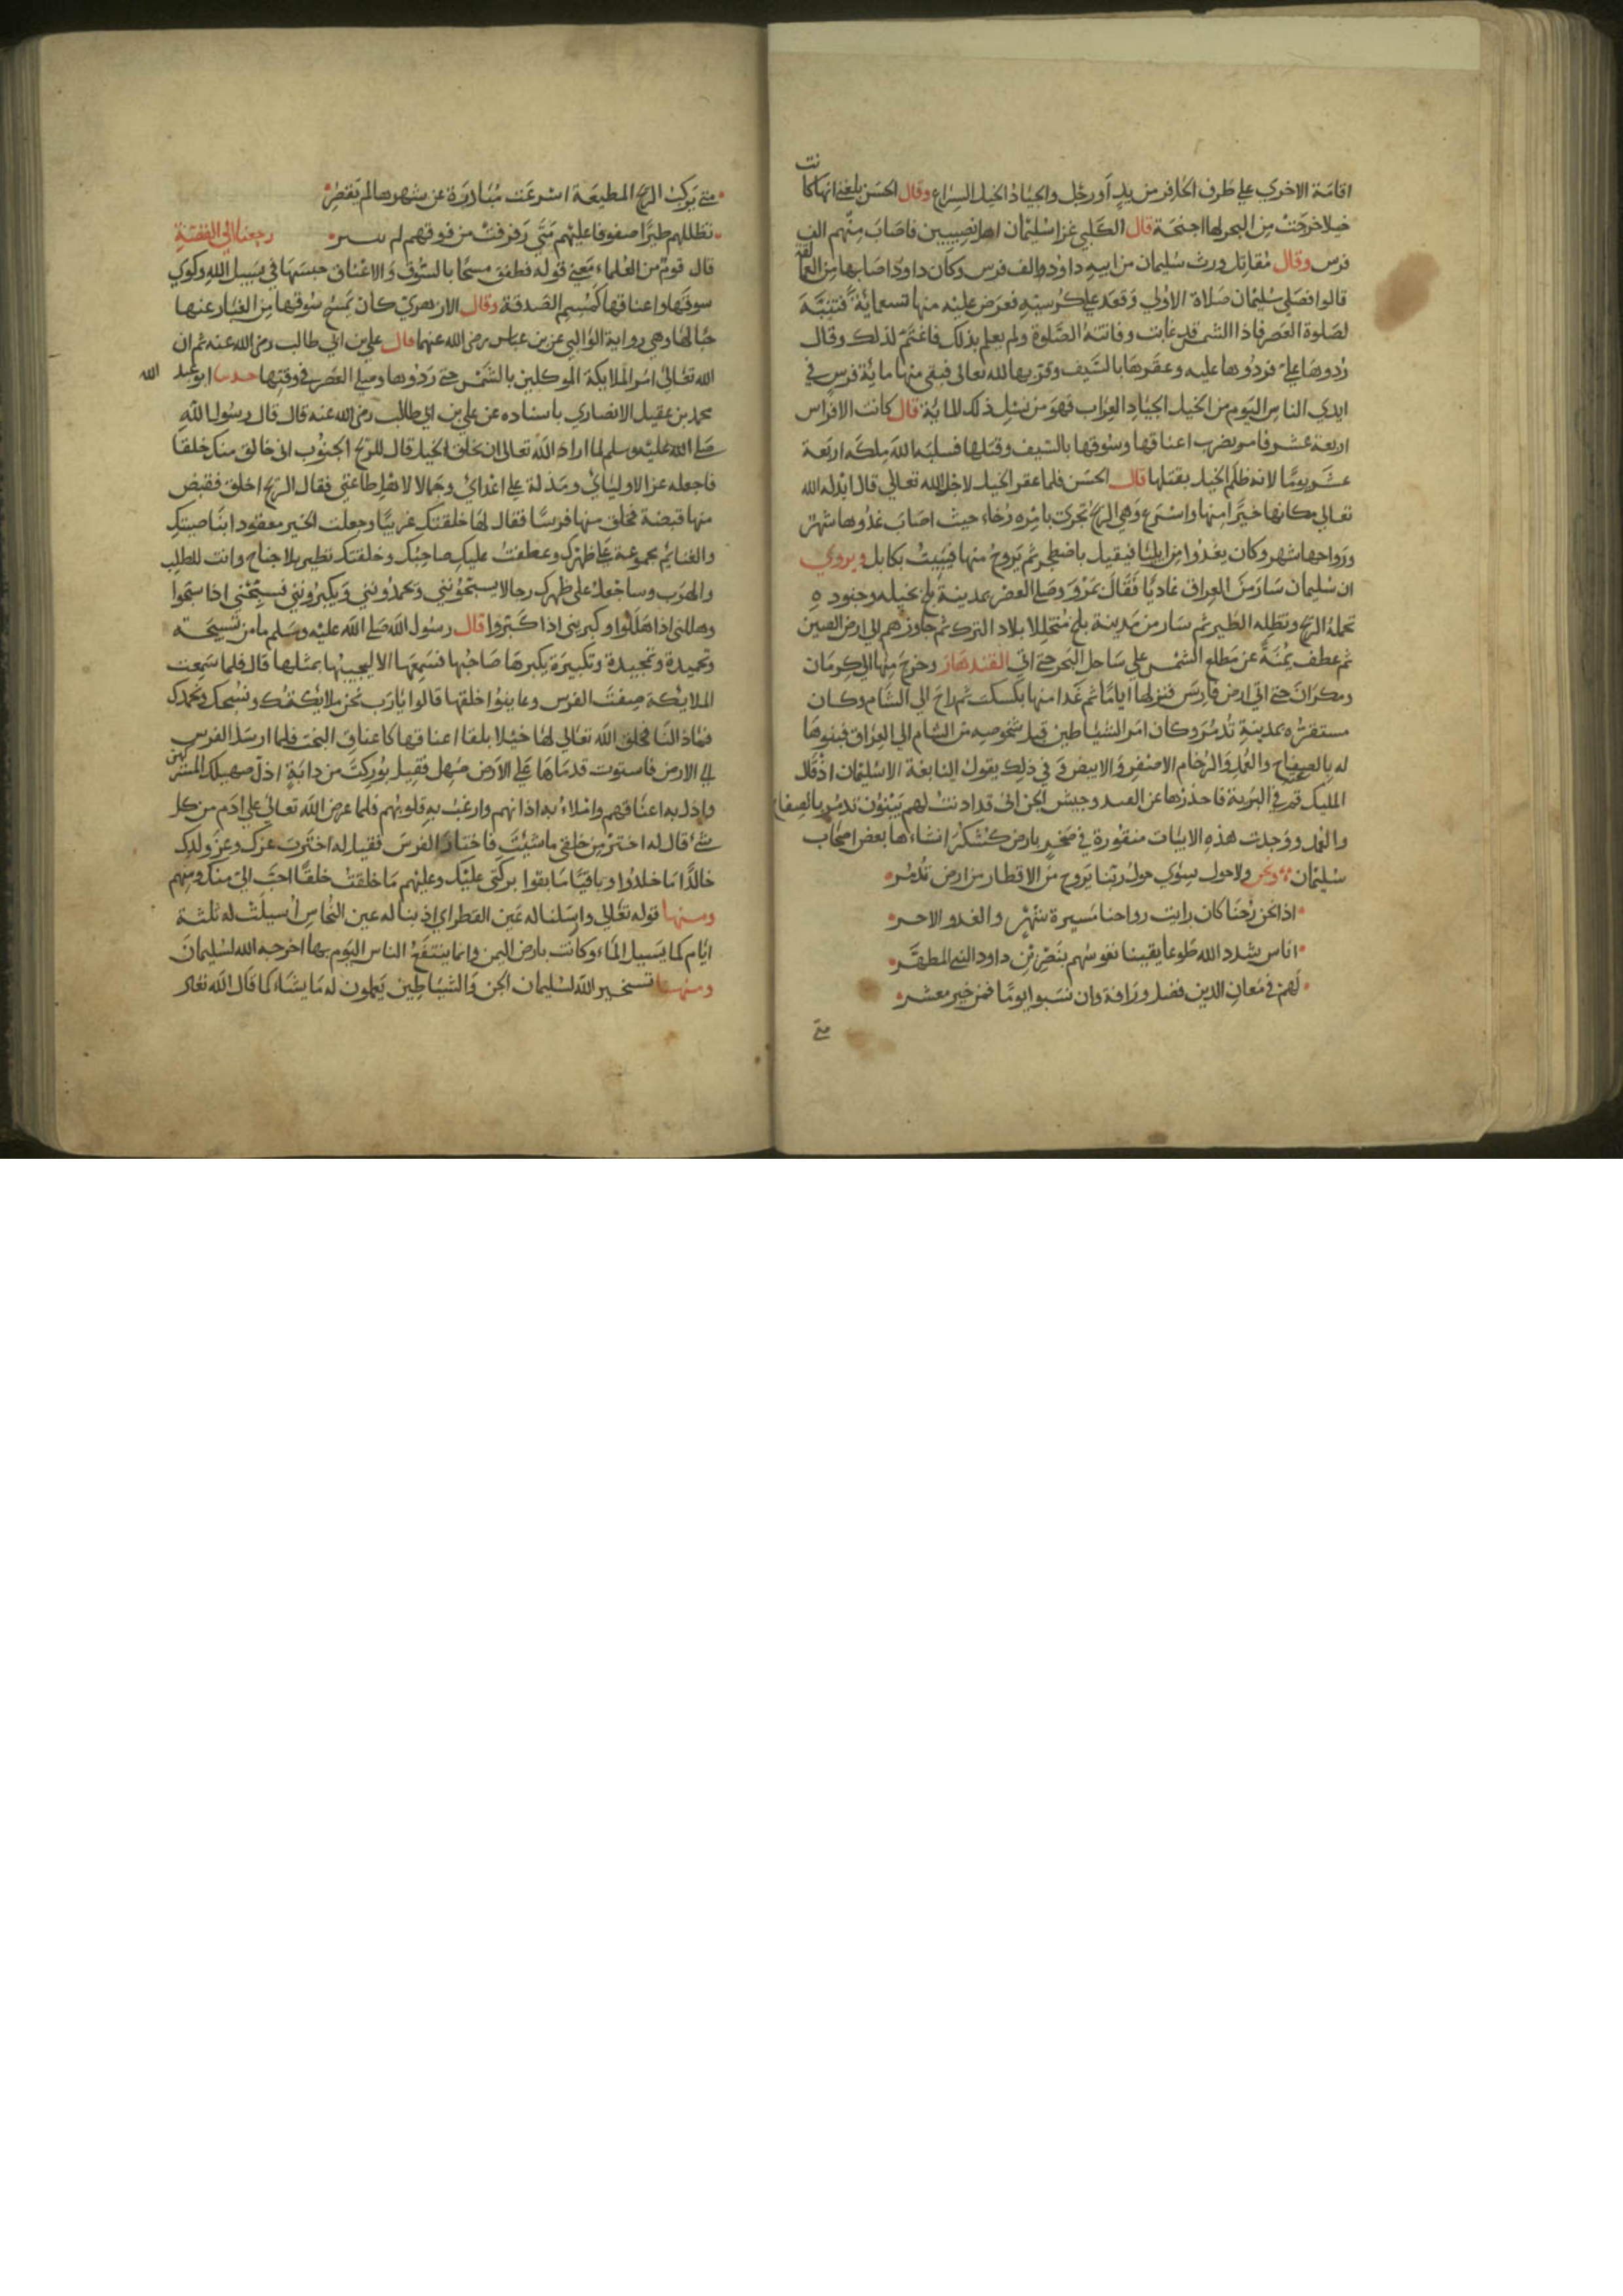 اقامة الاخري علي طرف الحافر من يدٍ أو رجل والجياد الخيل السراع وقال الحسن بلغني انها كانت
خيلا خرجت من البحر لها اجنحة قال الكلبي غزا سليمان اهل نصيبين فاصاب منهم الف
فرس وقال مقاتل ورث سليمان من ابيه داود الف فرس وكان داود اصابها من العمالقة
قالوا فصلي سليمان صلاة الاولي وقعد علي كرسيه فعرض عليه منها تسعمائة فتنبه
لصلوة العصر فاذا الشمس قد غابت وفاتته الصلوة ولم يعلم بذلك فاغتم لذلك وقال
ردوها علي فردوها عليه وعقرها بالسيف وقرّبها لله تعالى فبقي منها ماية فرس في
ايدي الناس اليوم من الخيل الجياد العراب فهو من نسل ذلك الماية قال كانت الافراس
اربعة عشر فامر بضرب اعناقها وسوقها بالسيف وقتلها فسلبه الله ملكه اربعة
عشر يومًا لانه ظلم الخيل بقتلها قال الحسن فلما عقر الخيل لاجل الله تعالي قال ابدله الله
تعالي مكانها خيرًا منها واسرع وهي الريح تجري بامره رخاء حيث اصاب غدوها شهر
ورواحها شهر وكان يغدوا من ايليا فيقيل باصطخر ثم يروح منها فيبيت بكابل ويروي
ان سليمان سار من العراق غاديًا فقال بمرو وصلي العصر بمدينة بلخ بخيله وجنوده
تحمله الريح وتظله الطير ثم سار من مدينة بلخ متخللا بلاد الترك ثم جاوزهم الي ارض الصين
ثم عطف يمنة عن مطلع الشمس علي ساحل البحر حتي اتي القندهار وخرج منها الي كرمان
ومكران حتي اتي ارض فارس فنزلها اياما ثم غدا منها بكسكر ثم راح الي الشام وكان
مستقره بمدينة تدمر وكان امر الشياطين قبل شخوصه من الشام الي العراق فبنوها
له بالصفاح والعمد والرخام الاصفر والابيض وفي ذلك يقول النابغة الا سليمان اذ قال
المليك قم في البرية فاحذرها عن الفند وجيش الجن اني قد اذنت لهم يبنون تدمر بالصفاح
والعمد ووجدت هذه الابيات منقورة في صخر بارض كسكر انشاءها بعض اصحاب
سليمان ونحن ولا حول سوي حول ربنا يروح من الاقطار من ارض تدمر
اذا نحن رحنا كان رايت رواحنا مسيرة شهر والغدو الاخر
اناس شدد الله طوعا يقينا نفوسهم بنصر بن داود النبي المطهر
لهم في معان الدين فضل ورافة وان نسبوا يوما فمن خير معشر
متي
متي يركب الريح المطيعة اسرعت مبادرة عن شهرها لم يقصر
تظللهم طيرا صفوفا عليهم متي رفرفت من فوقهم لم رجعنا الي القصة
قال قوم من العلماء معني قوله فطفق مسحا بالسوق والاعناق حبسها في سبيل الله وكوي
سوقها واعناقها كميسم الصدقة وقال الازهري كان يمسح سوقها من الغبار عنها
حبا لها وهي رواية الوالبي عن بن عباس رضي الله عنهما قال علي بن ابي طالب رضي الله عنه ثم ان
الله تعالي امر الملايكة الموكلين بالشمس حتي ردوها وصلي العصر في وقتها حدثنا ابو عبد الله
محمد بن عقيل الانصاري باسناده عن علي بن ابي طالب رضي الله عنه قال قال رسول الله
صلي الله عليه وسلم لما اراد الله تعالي ان يخلق الخيل قال للريح الجنوب اني خالق منك خلقا
فاجعله عزا لاوليائي ومذلة علي اعدائي وجمالا لاهل طاعتي فقال الريح اخلق فقبض
منها قبضة فخلق منها فرسا فقال لها خلقتك عربيا وجعلت الخير معقودا بناصيتك
والغنائم مجموعة علي ظهرك وعطفت عليك صاحبك وخلقتك تطير بلا جناح وانت للطلب
والهرب وساجعل علي ظهرك رجالا يسبحونني ويحمدونني ويكبرونني فسبحني اذا سبحوا
وهللني اذا هللوا وكبريني اذا كبروا قال رسول الله صلي الله عليه وسلم ما من تسبيحة
وتحميدة وتمجيدة وتكبيرة يكبرها صاحبها فتسمعها الا تجيبها بمثلها قال فلما سمعت
الملايكة صفت الفرس وعاينوا خلقها قالوا يارب نحن ملايكتك ونسبحك ونحمدك
فماذا لنا فخلق الله تعالي لها خيلا بلقا اعناقها كاعناق البخت فلما ارسل الفرس
الي الارض فاستوت قدماها علي الارض صهل فقيل بوركت من دابة اذل صهيلك المشركين
واذل به اعناقهم واملاء به اذانهم وارعب به قلوبهم فلما عرض الله تعالي علي ادم من كل
شيء قال له اختر من خلقي ما شيت فاختار الفرس فقيل له اخترت عزك وعز ولدك
خالدا ما خلدوا وباقيا ما بقوا بركتي عليك وعليهم ما خلقت خلقا احب الي منك ومنهم
ومنها قوله تعالي واسلنا له عين القطر اي اذبنا له عين النحاس اسيلت له ثلثة
ايام كما يسيل الماء وكانت بارض اليمن وانما ينتفع الناس اليوم بها اخرجه الله لسليمان
ومنها تسخير الله لسليمان الجن والشياطين يعملون له ما يشاء كما قال الله تعالي